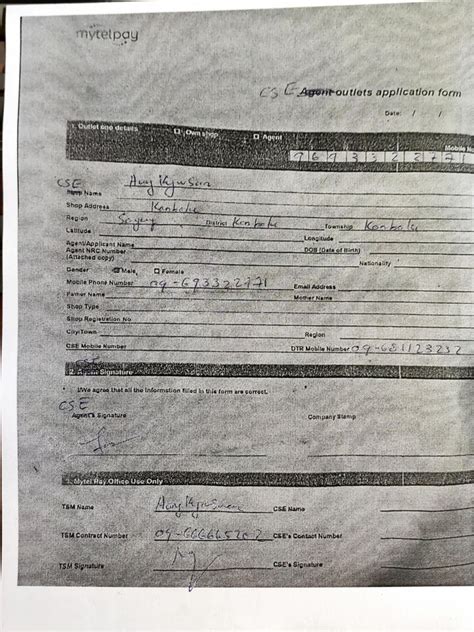 mytelpay
CSE Agent outlets application form
Date: / /
1. Outlet one details Own shop Agent
Mobile No
CSE
Shop Name
Shop Address Kanbalu
Region District Kanbalu Township Kanbalu
Latitude Longitude
Agent/Applicant Name DOB (Date of Birth)
Agent NRC Number Nationality
(Attached copy)
Gender Male Female
Mobile Phone Number 09-693322771 Email Address
Father Name Mother Name
Shop Type
Shop Registration No
City/Town Region
CSE Mobile Number DTR Mobile Number 09-681123232
CSE
2. Agent Signature
I/We agree that all the information filled in this form are correct.
CSE
Agent's Signature Company Stamp
3. Mytel Pay Office Use Only
TSM Name CSE Name
TSM Contract Number CSE's Contact Number
TSM Signature CSE's Signature